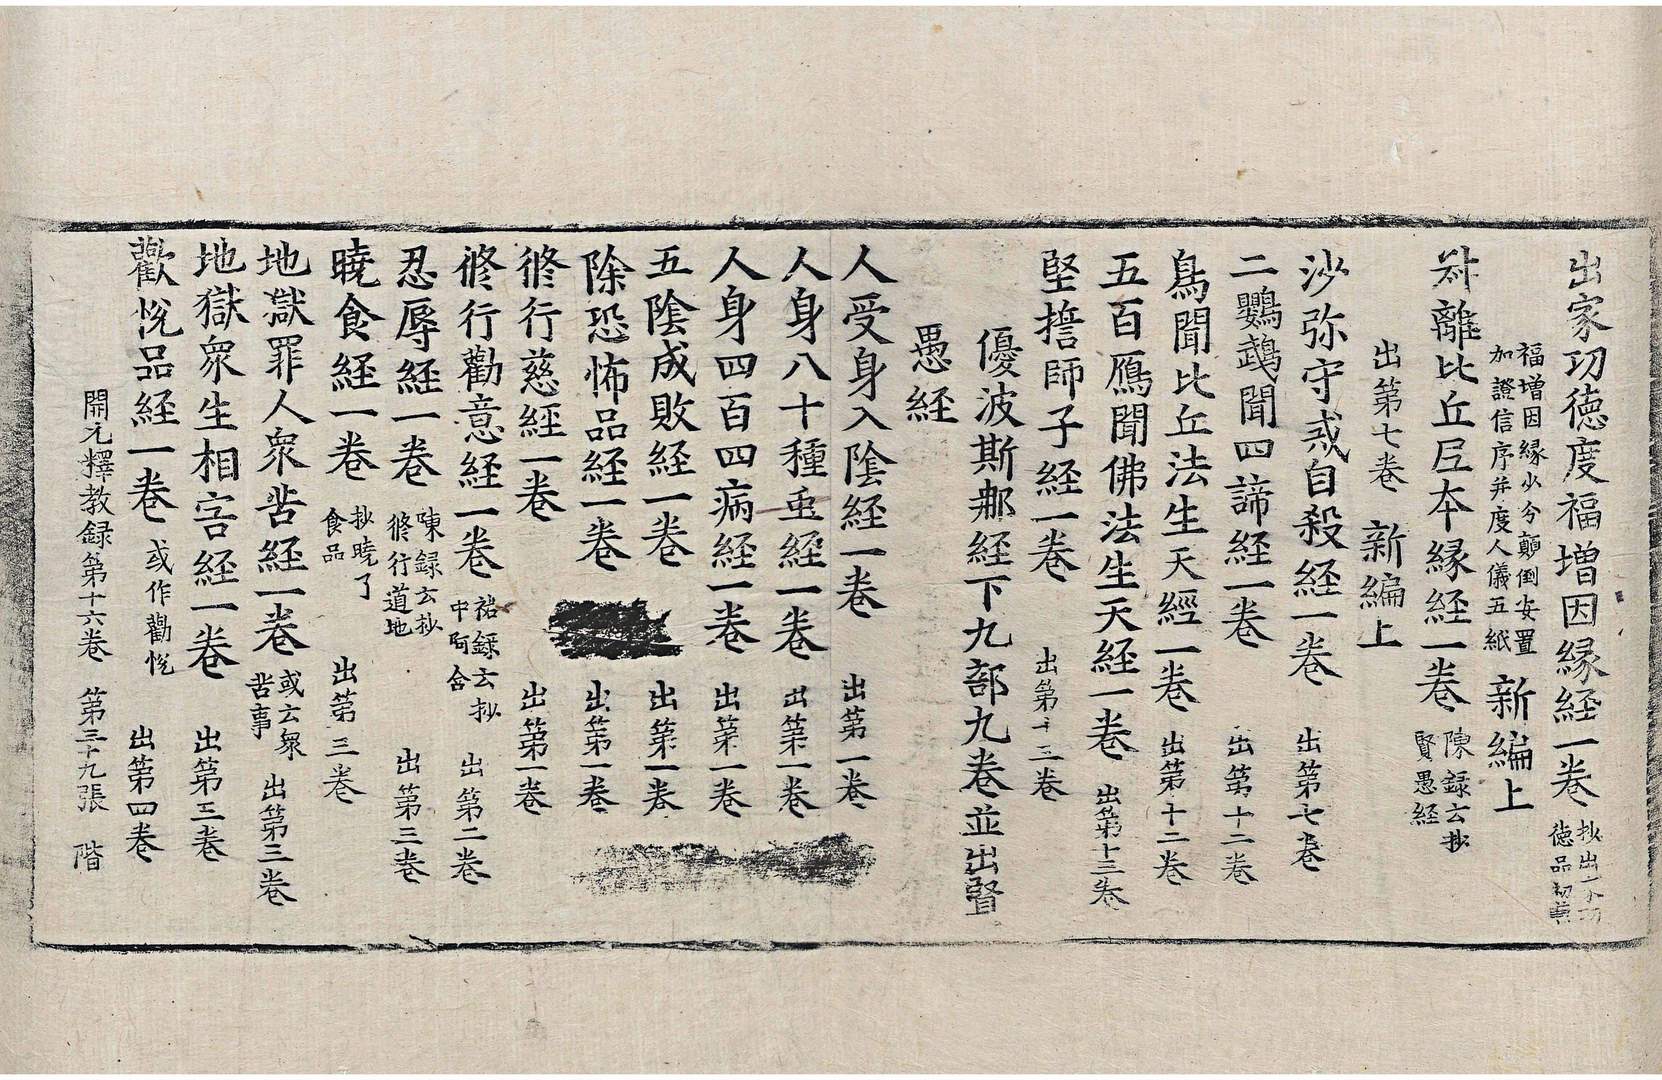 出家功徳度福增因縁経一卷 抄出家功徳品初兼
福增因縁少今顛倒安置加證信序并度人儀五紙 新編上
叔離比丘尼本縁経一卷 陳録云抄賢愚経
出第七卷 新編上
沙弥守戒自殺経一卷 出第七卷
二鸚鵡聞四諦経一卷 出第十二卷
鳥聞比丘法生天經一卷 出第十二卷
五百鴈聞佛法生天経一卷 出第十三卷
堅誓師子経一卷 出第十三卷
優波斯那経下九部九卷並出賢
愚経
人受身入陰経一卷 出第一卷
人身八十種虫経一卷 出第一卷
人身四百四病経一卷 出第一卷
五陰成敗経一卷 出第一卷
除恐怖品経一卷 出第一卷
修行慈経一卷 出第一卷
修行勸意経一卷 祐録云抄中阿含 出第二卷
忍辱経一卷 陳録云抄修行道地 出第三卷
曉食経一卷 抄曉了食品 出第三卷
地獄罪人衆苦経一卷 或云衆苦事 出第三卷
地獄衆生相害経一卷 出第三卷
歡悅品経一卷 或作勸悅 出第四卷
開元釋教録第十六卷 第三十九張 階